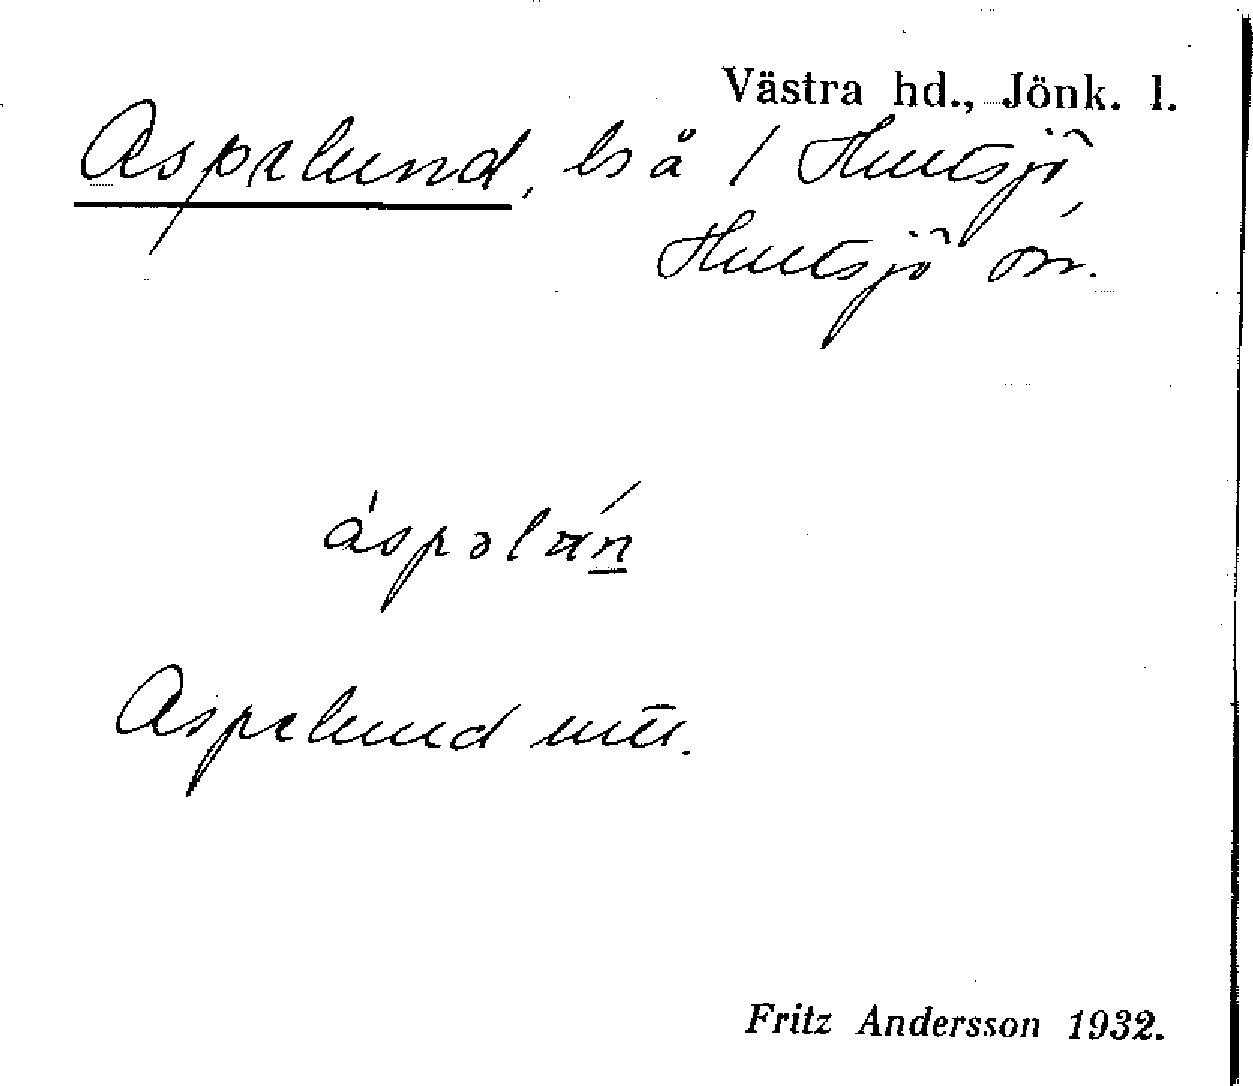 Västra hd., Jönk. l.
Aspelund, ls å / Hultsjö,
Hultsjö sn.
áspəlán
Aspelund
Fritz Andersson 1932.